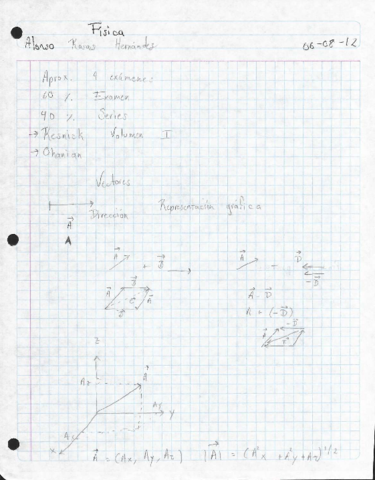 Física
Alonso Hernandez 06-08-12
Aprox. 4 exámenes
60 % Examen
40 % Series
→ Resnick Volumen I
→ Ohanian
Vectores
Dirección Representación gráfica
A
A
A + B → A - D
-D
B
A A
B
A - D
A + (-D)
-D
A
z
Az A
Ay y
Ax
x
A = (Ax, Ay, Az) |A| = (A²x + A²y + Az)^1/2